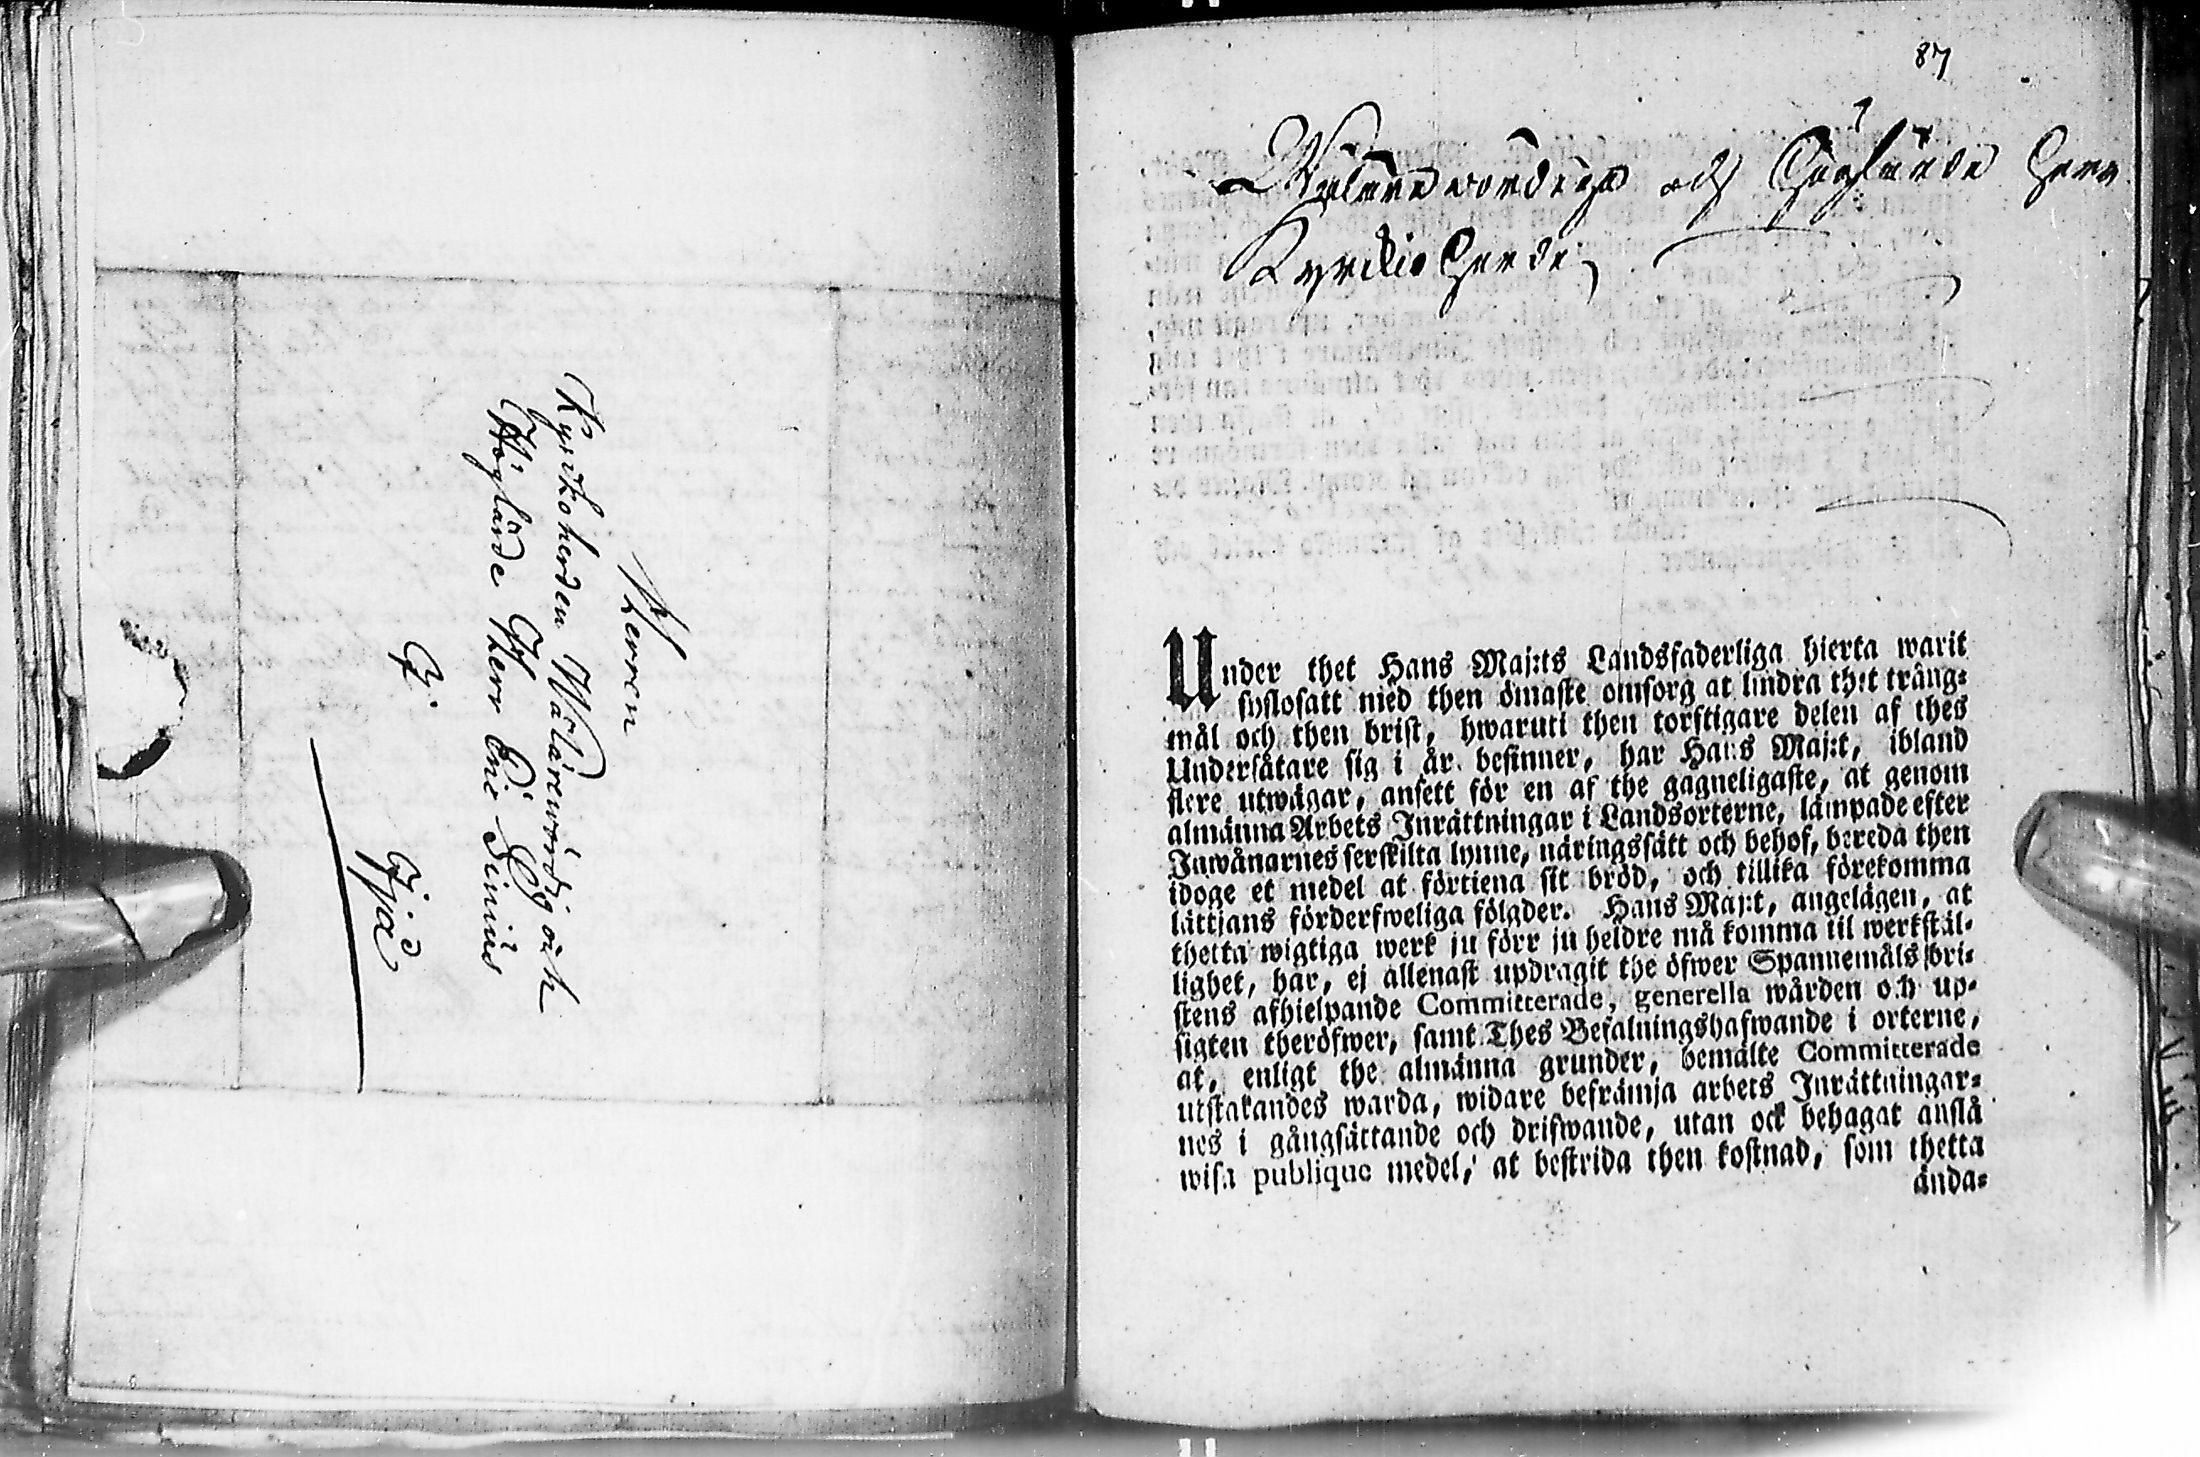 Herren
Kyrckoherden Wälärewördig och
Höglärde Herr Eric Dinius
G.
Gjö
87
Wälärewördige och Höglärde Herr
Kyrckio Herde,
Under thet Hans Maj:ts Landsfaderliga hierta warit
syslosatt med then ömaste omsorg at lindra thet trång-
mål och then brist, hwaruti then torftigare delen af thes
Undersåtare sig i år befinner, har Hans Maj:t, ibland
flere utwägar, ansett för en af the gagneligaste, at genom
almänna Arbets Inrättningar i Landsorterne, lämpade efter
Inwånarnes serskilta lynne, näringssätt och behof, bereda then
idoge et medel at förtiena sit bröd, och tillika förekomma
lättjans förderfweliga fölgder. Hans Maj:t, angelägen, at
thetta wigtiga werk ju förr ju heldre må komma til werkstäl-
lighet, har, ej allenast updragit the öfwer Spannemåls bri-
stens afhielpande Committerade, generella wården och up-
sigten theröfwer, samt Thes Befalningshafwande i orterne,
at, enligt the almänna grunder, bemälte Committerade
utstakandes warda, widare befrämja arbets Inrättningar-
nes i gångsättande och drifwande, utan ock behagat anslå
wisa publique medel, at bestrida then kostnad, som thetta
ända-